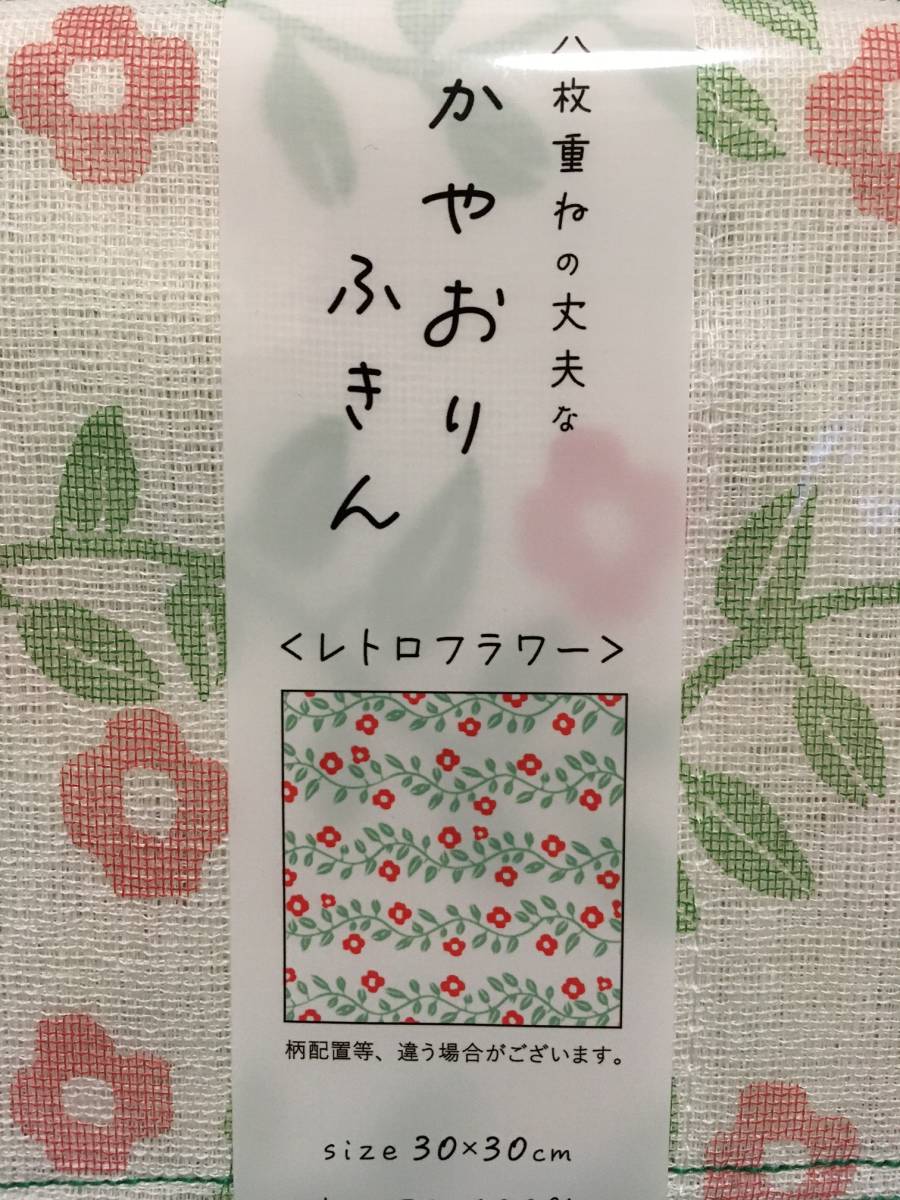 八枚重ねの丈夫な
かやおり
ふきん
<レトロフラワー>
柄配置等、違う場合がございます。
size 30×30cm